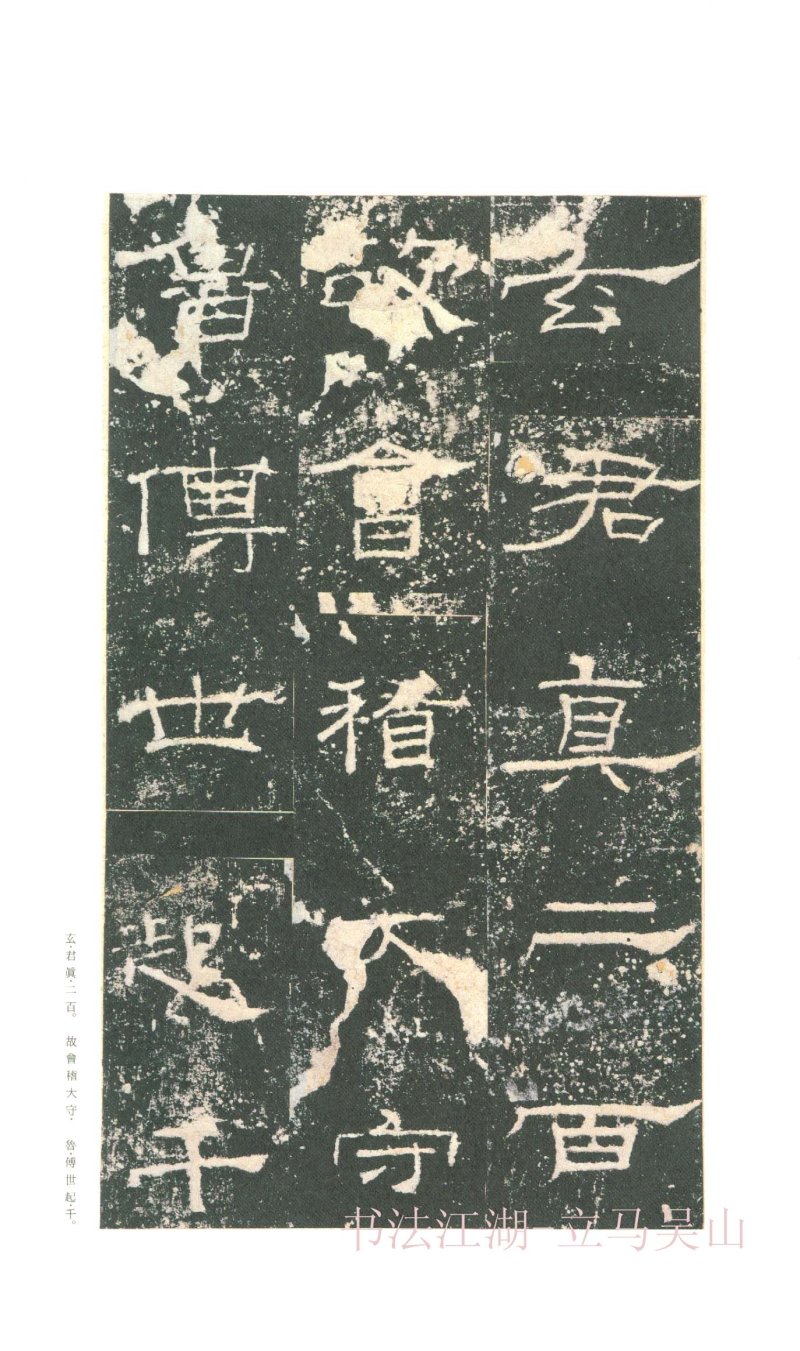 玄君真二百
故會稽大守
魯傅世起千
玄·君眞·二百。 故會稽大守· 魯·傅世起·千。
书法江湖 立马吴山